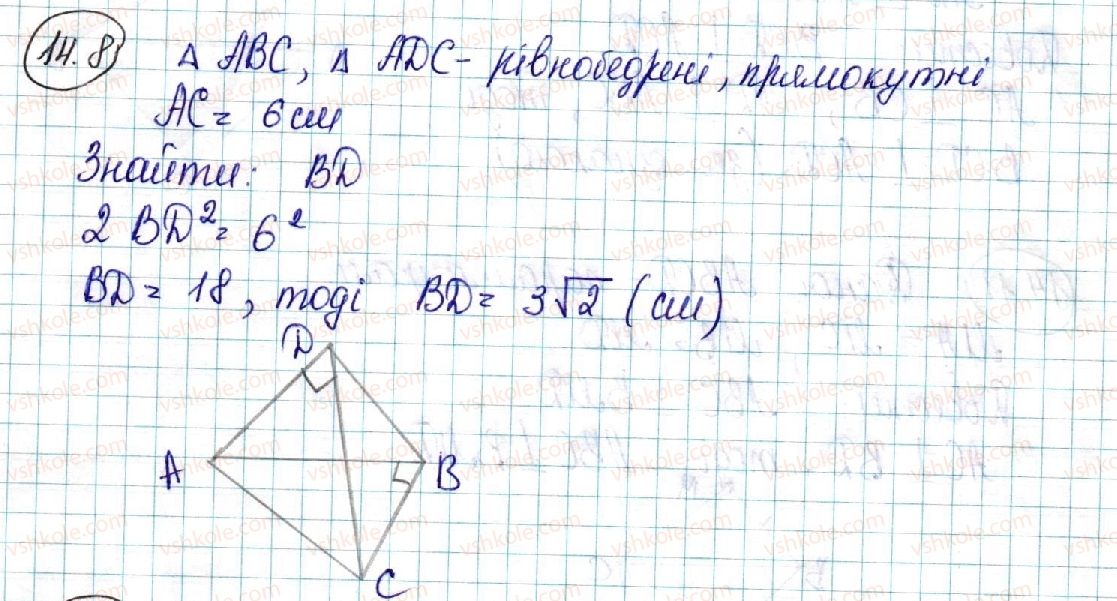 14.8 △ ABC, △ ADC - рівнобедрені, прямокутні
AC = 6 см
Знайти: BD
2 BD² = 6²
BD = 18, тоді BD = 3√2 (см)
D
A B
C